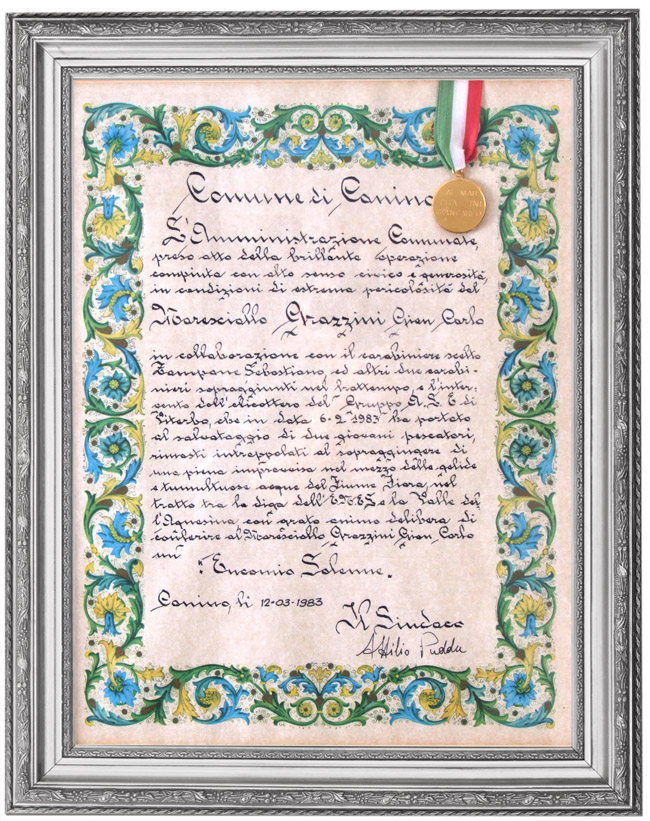 Comune di Canino
L'Amministrazione Comunale,
preso atto della brillante operazione
compiuta con alto senso civico e generosità,
in condizioni di estrema pericolosità del
Maresciallo Grazzini Gian Carlo
in collaborazione con il carabiniere scelto
Zampone Sebastiano, ed altri due carabi-
nieri sopraggiunti nel frattempo e l'inter-
vento dell'elicottero del Gruppo A.L.E. di
Viterbo, che in data 6-2-1983 ha portato
al salvataggio di due giovani pescatori,
rimasti intrappolati al sopraggiungere di
una piena improvvisa nel mezzo delle gelide
e tumultuose acque del Fiume Fiora, nel
tratto tra la diga dell'ENEL e la Valle del-
l'Agnesina, con grato animo delibera di
conferire al Maresciallo Grazzini Gian Carlo
un
"Encomio Solenne"
Canino, lì 12-03-1983
Il Sindaco
Attilio Puddu
GRAZZINI
GIANCARLO